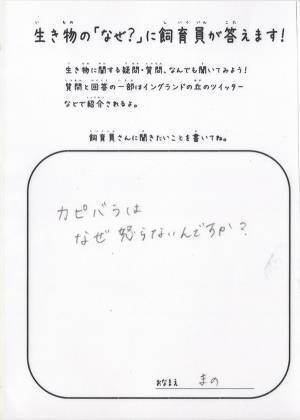 生き物の「なぜ?」に飼育員が答えます!
生き物に関する疑問・質問、なんでも聞いてみよう!
質問と回答の一部はイングランドの丘のツイッター
などで紹介されるよ。
飼育員さんに聞きたいことを書いてね。
カピバラは
なぜ怒らないんですか?
おなまえ まの